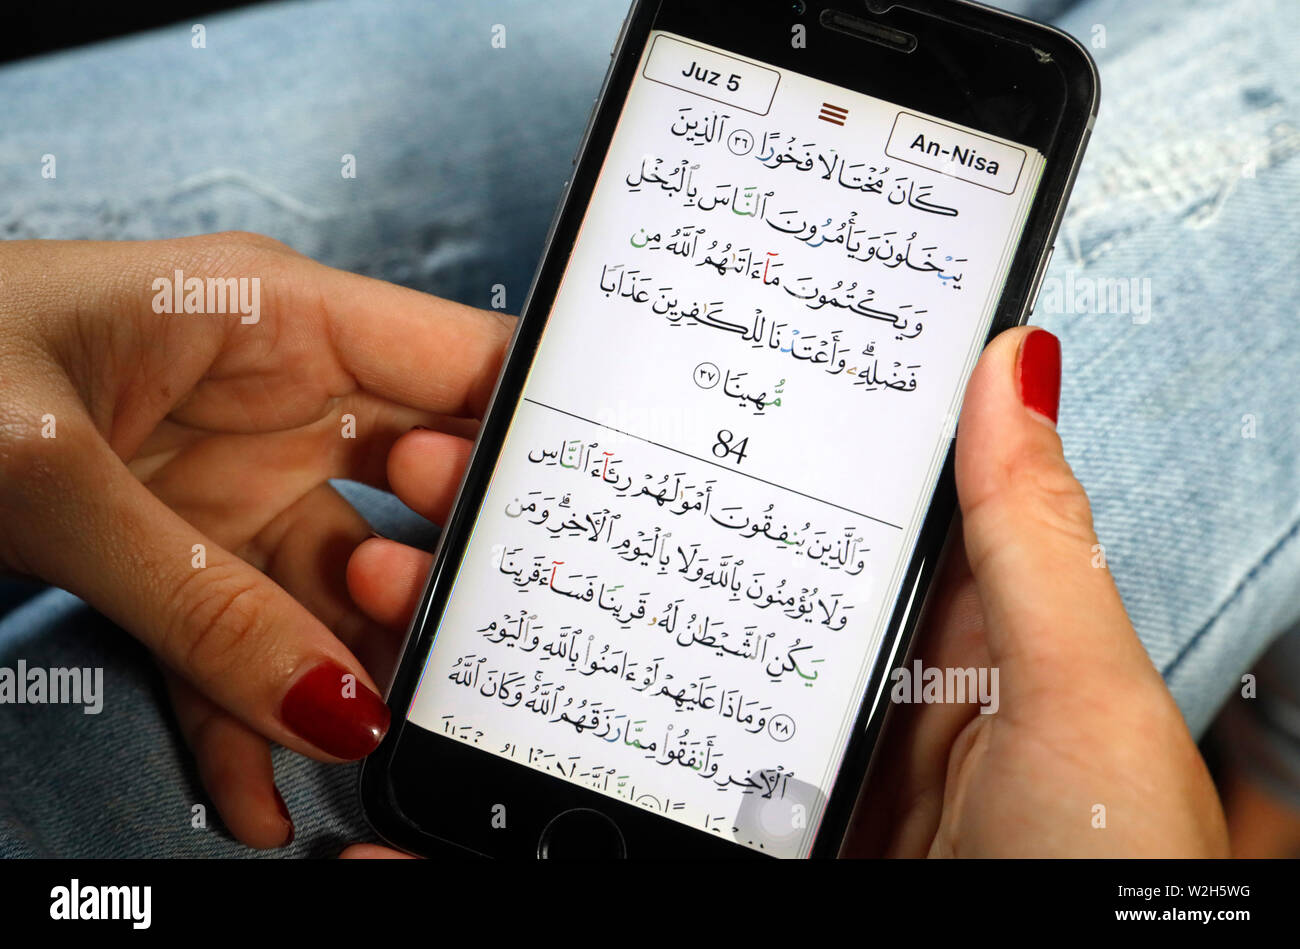 Juz 5
An-Nisa
كَانَ مُخْتَالًا فَخُورًا ٣٦ ٱلَّذِينَ
يَبْخَلُونَ وَيَأْمُرُونَ ٱلنَّاسَ بِٱلْبُخْلِ
وَيَكْتُمُونَ مَآ ءَاتَىٰهُمُ ٱللَّهُ مِن
فَضْلِهِۦ ۗ وَأَعْتَدْنَا لِلْكَٰفِرِينَ عَذَابًا
مُّهِينًا ٣٧
84
وَٱلَّذِينَ يُنفِقُونَ أَمْوَٰلَهُمْ رِئَآءَ ٱلنَّاسِ
وَلَا يُؤْمِنُونَ بِٱللَّهِ وَلَا بِٱلْيَوْمِ ٱلْءَاخِرِ ۗ وَمَن
يَكُنِ ٱلشَّيْطَٰنُ لَهُۥ قَرِينًا فَسَآءَ قَرِينًا
٣٨ وَمَاذَا عَلَيْهِمْ لَوْ ءَامَنُوا۟ بِٱللَّهِ وَٱلْيَوْمِ
ٱلْءَاخِرِ وَأَنفَقُوا۟ مِمَّا رَزَقَهُمُ ٱللَّهُ ۚ وَكَانَ ٱللَّهُ
alamy
Image ID: W2H5WG
www.alamy.com